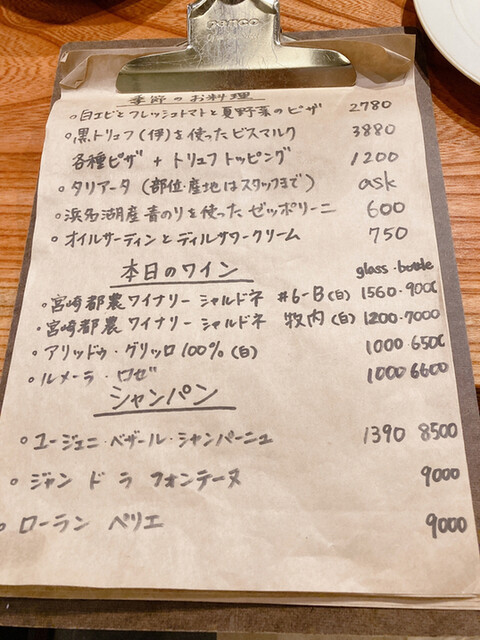 季節のお料理
○白エビとフレッシュトマトと夏野菜のピザ 2780
○黒トリュフ(伊)を使ったビスマルク 3880
各種ピザ + トリュフトッピング 1200
○タリアータ (部位・産地はスタッフまで) ask
○浜名湖産青のりを使ったゼッポリーニ 600
○オイルサーディンとディルサワークリーム 750
本日のワイン glass・bottle
○宮崎都農ワイナリー シャルドネ #6-B(白) 1560・9000
○宮崎都農ワイナリー シャルドネ 牧内(白) 1200・7000
○アリッドゥ・グリッロ100%(白) 1000 6500
○ルメーラ・ロゼ 1000 6600
シャンパン
○ユージェニ・ベザール・シャンパーニュ 1390 8500
○ジャン ド ラ フォンテーヌ 9000
○ローラン ペリエ 9000